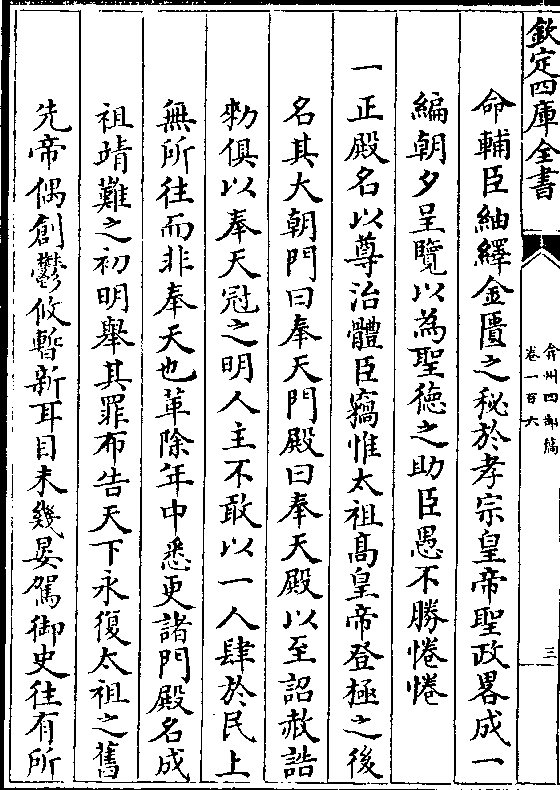 欽定四庫全書
弇州四部稿
卷一百六
三
命輔臣紬繹金匱之秘於孝宗皇帝聖政畧成一
編朝夕呈覽以為聖徳之助臣愚不勝惓惓
一正殿名以尊治體臣竊惟太祖髙皇帝登極之後
名其大朝門曰奉天門殿曰奉天殿以至詔赦誥
勑俱以奉天冠之明人主不敢以一人肆於民上
無所往而非奉天也革除年中悉更諸門殿名成
祖靖難之初明舉其罪布告天下永復太祖之舊
先帝偶創鬱攸暫新耳目未幾晏駕御史往有所